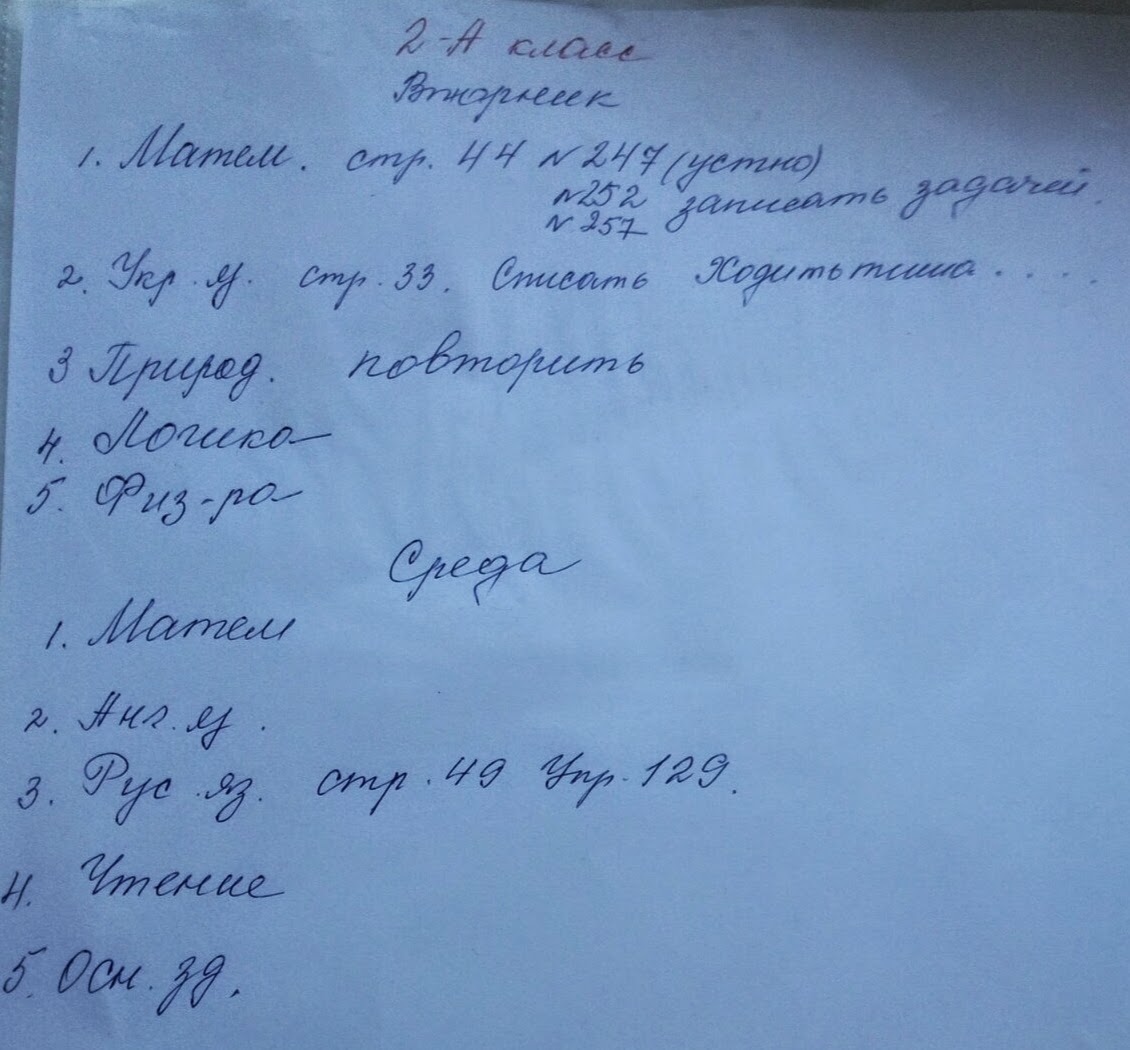 2-А класс
Вторник
1. Матем. стр. 44 № 247 (устно)
№252 записать задачей.
№257
2. Укр. яз. стр. 33. Списать Ходить тиша . . . .
3 Природ. повторить
4. Логика
5. Физ-ра
Среда
1. Матем
2. Анг. яз.
3. Рус. яз. стр. 49 Упр. 129.
4. Чтение
5. Осн. зд.